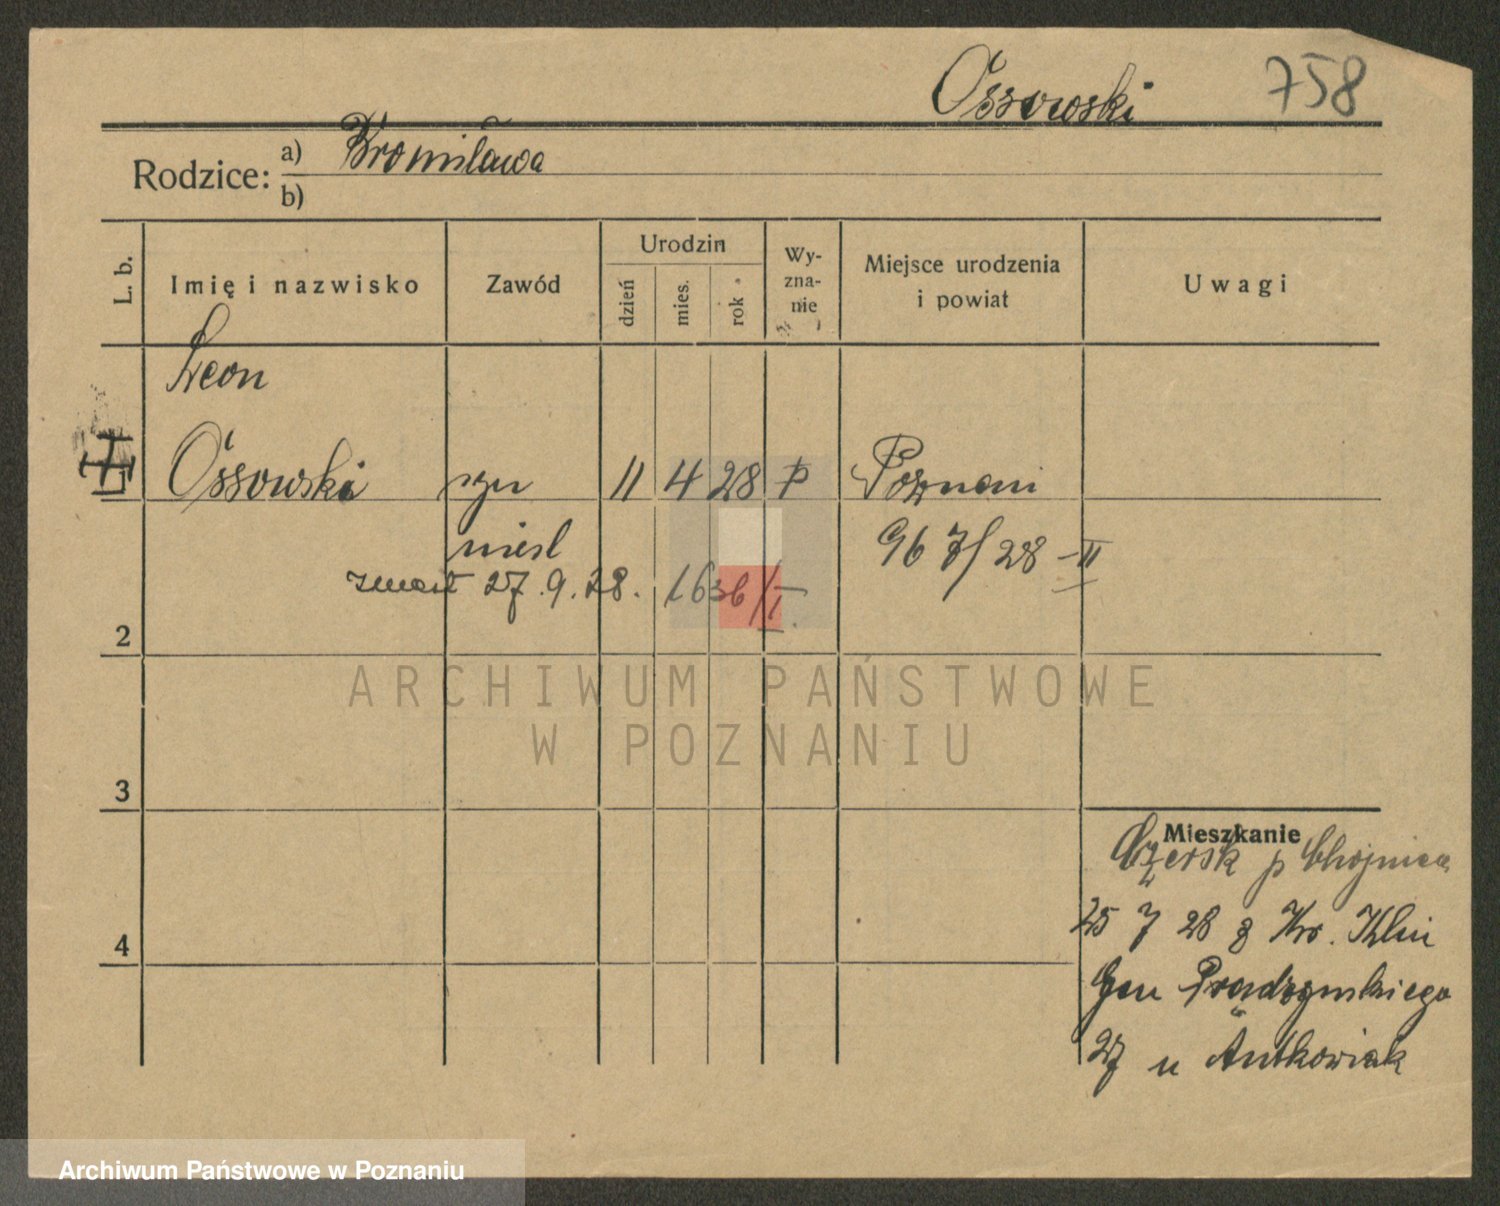 Ossowski 758
Rodzice: a) Bronisława
b)
L. b. Imię i nazwisko Zawód Urodzin dzień mies. rok Wy-zna-nie Miejsce urodzenia i powiat Uwagi
Leon
1 Ossowski syn 11 4 28 Poznań
nieśl 967/28-II
zmarł 27.9.28. 1636/I.
2
3
4
Mieszkanie
Czersk p Chojnice
25 7 28 z Kr. Klin
Gen Prądzyńskiego
27 u Antkowiak
ARCHIWUM PAŃSTWOWE
W POZNANIU
Archiwum Państwowe w Poznaniu